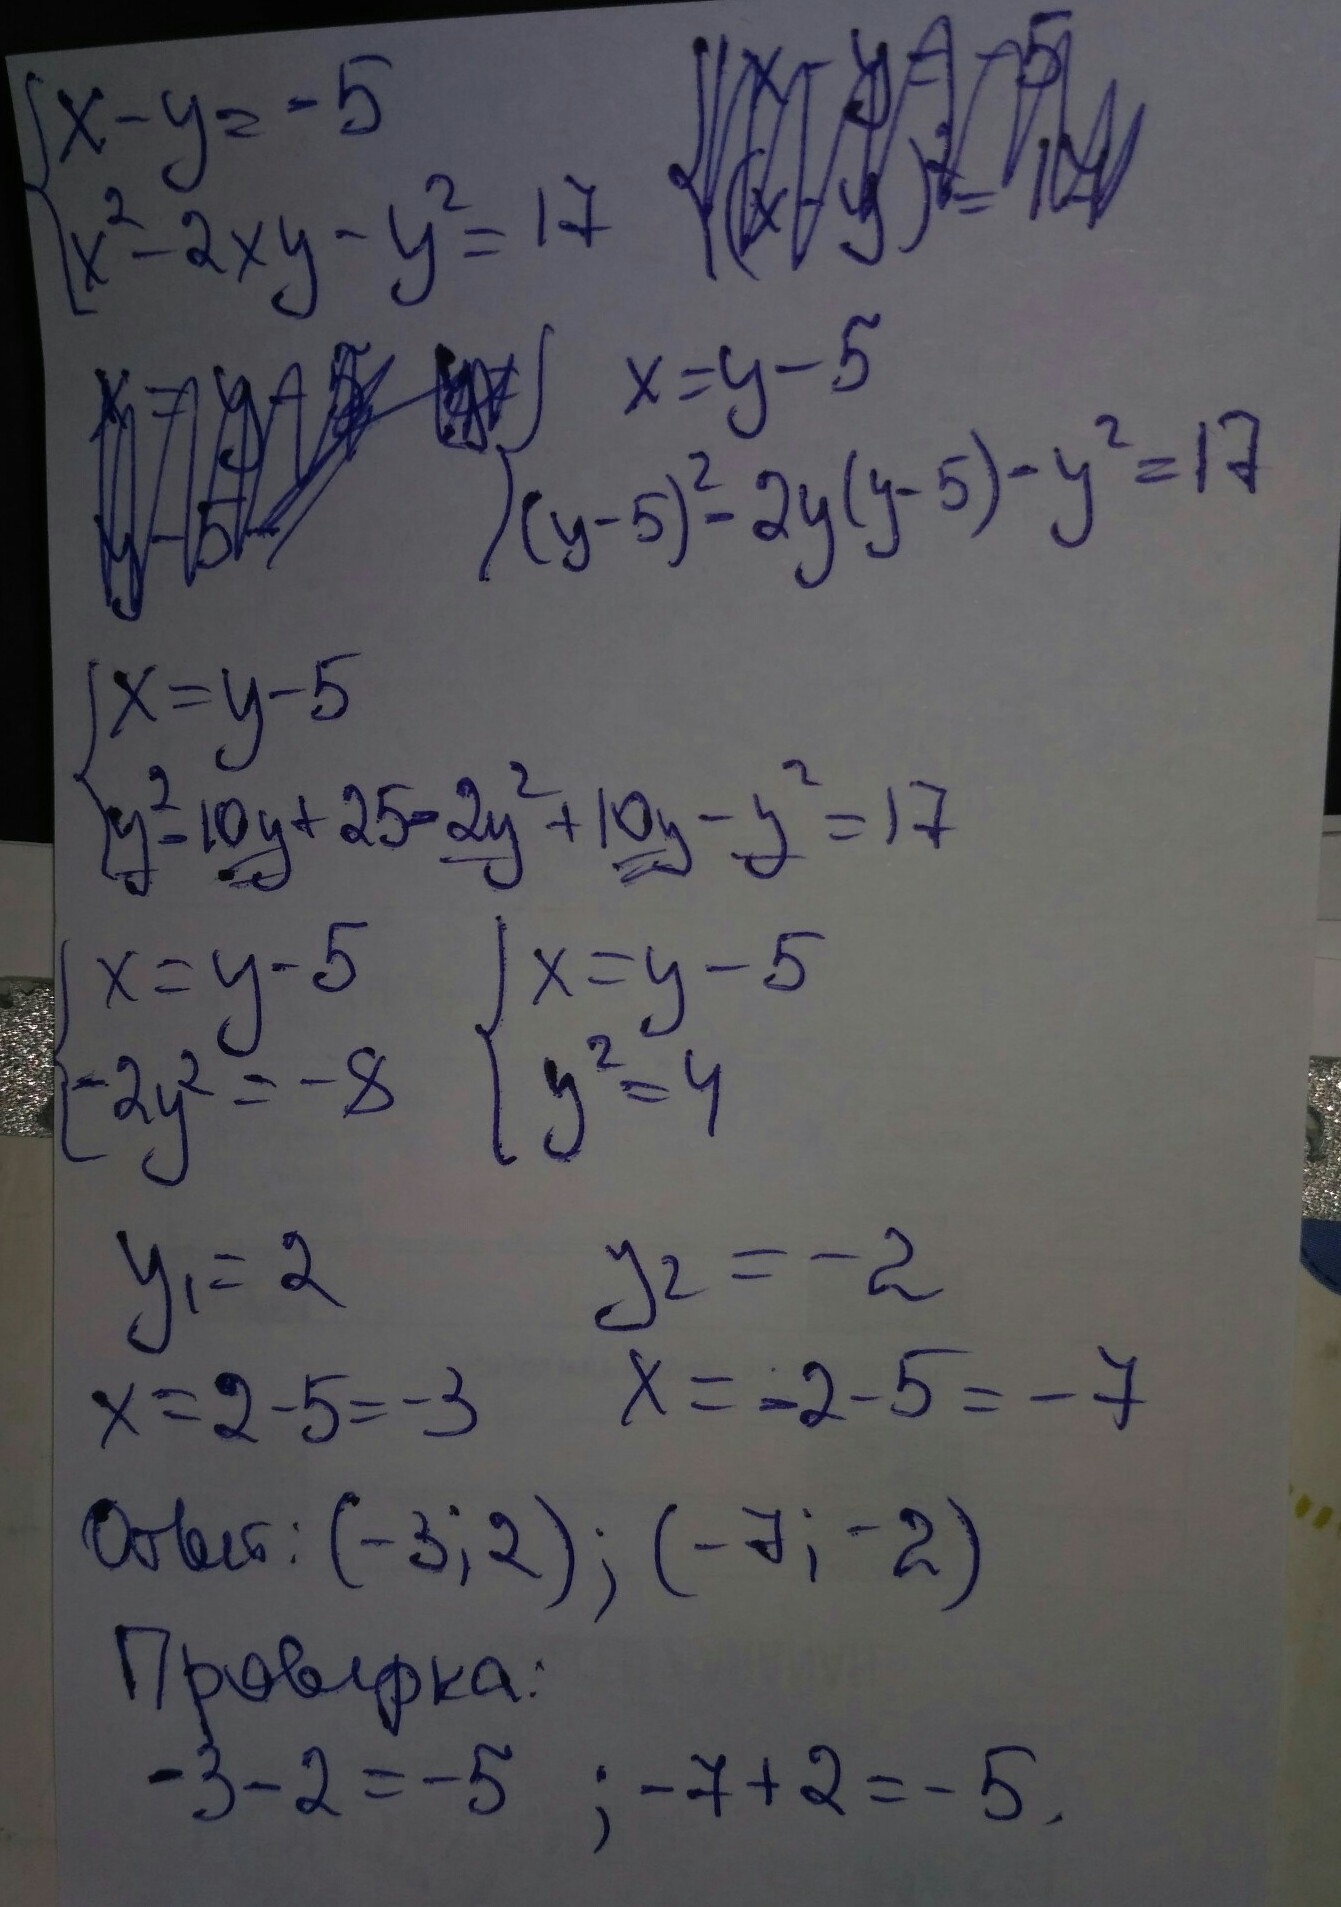 x-y=-5
x²-2xy-y²=17
x-y=-5
(x-y)²=17
x=y-5
y-5-
x=y-5
(y-5)²-2y(y-5)-y²=17
x=y-5
y²-10y+25-2y²+10y-y²=17
x=y-5
-2y²=-8
x=y-5
y²=4
y₁=2
y₂=-2
x=2-5=-3
x=-2-5=-7
Ответ: (-3;2);(-7;-2)
Проверка:
-3-2=-5 ;-7+2=-5.